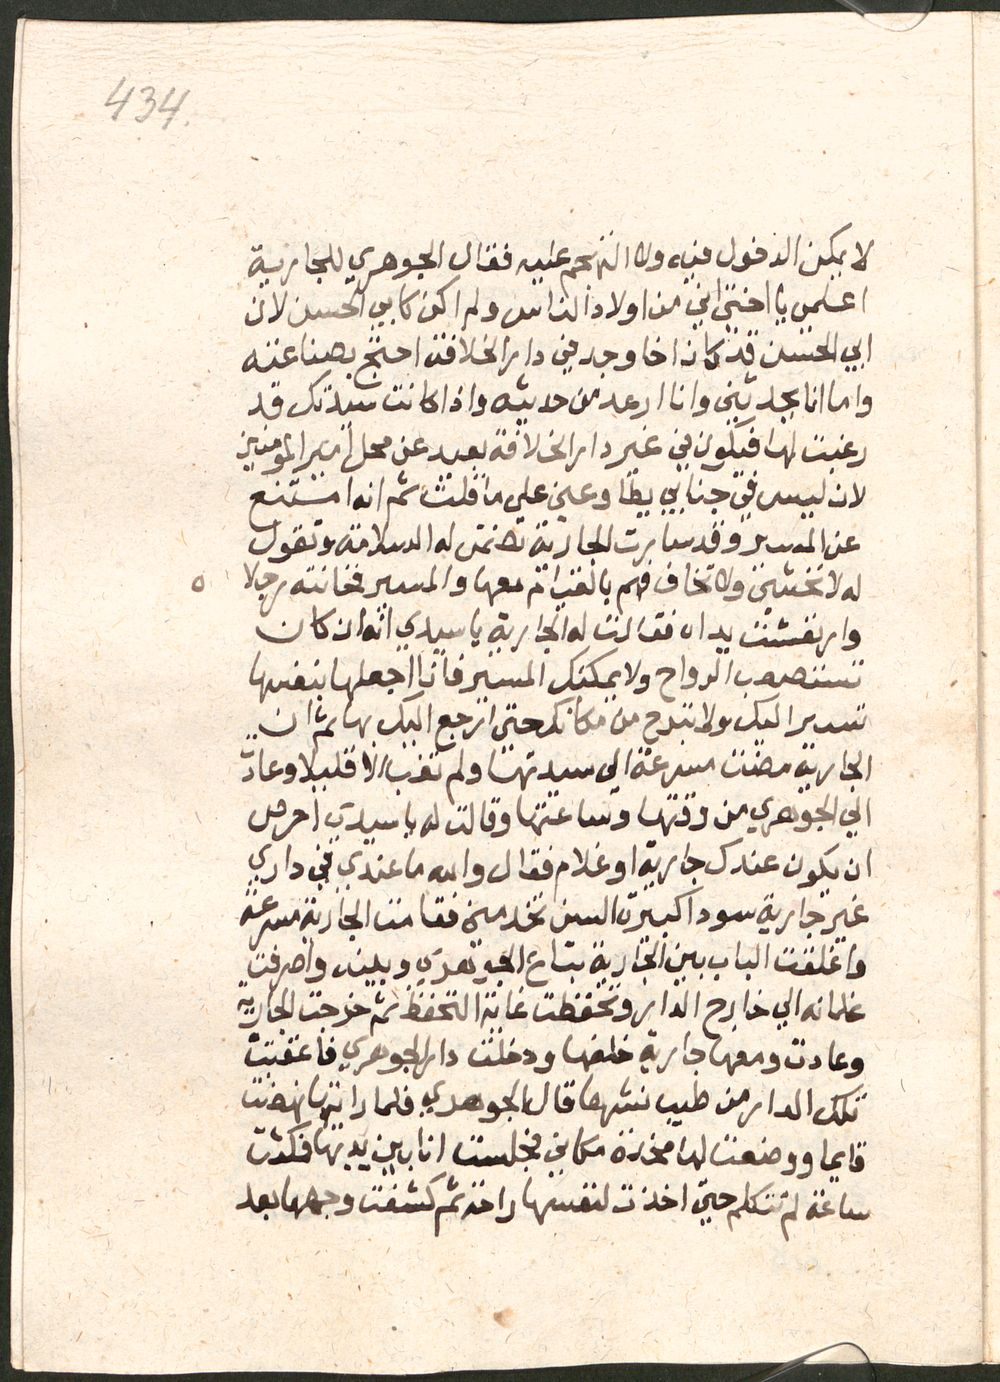 434.
لا يمكن الدخول فيه ولا التهجم عليه فقال الجوهري للجارية
اعلمي يا اختي اني من اولاد الناس ولم اكن كابي الحسن لان
ابي الحسن قد كان اخا وجد في دار الخلافة احتج بصناعته
واما انا بحديثي وانا ارعد من حديثه واذا كانت سيدتك قد
رغبت لهذا فيكون في غير دار الخلافة بعيد عن محل امير المومنين
لان ليس في جناني يطا وعني على ما قلت ثم انه امتنع
عن المسير وقد سارت الجارية تضمن له السلامة وتقول
له لا تخشى ولا تخاف فهم بالقيام معها والمسير فخانته رجلا ه
وارتعشت يداه فقالت له الجارية يا سيدي انه ان كان
تستصعب الرواح ولا يمكنك المسير فانا اجعلها بنفسها
تسير اليك ولا تبرح من مكانك حتى ارجع اليك بها ثم ان
الجارية مضت مسرعة الي سيدتها ولم تغب الا قليلا وعادت
الي الجوهري من وقتها وساعتها وقالت له يا سيدي احرص
ان يكون عندك جارية او غلام فقال والله ما عندي في داري
غير جارية سودا كبيرة السن تخدمني فقامت الجارية مسرعة
واغلقت الباب بين الجارية بتاع الجوهري وبينه واصرفت
غلمانه الي خارج الدار وتحفظت غاية التحفظ ثم خرجت الجارية
وعادت ومعها جارية خلفها ودخلت دار الجوهري فاعبقت
تلك الدار من طيب نشرها قال الجوهري فلما رايتها نهضت
قايما ووضعت لها مخدة مكاني فجلست انا بين يديها فمكثت
ساعة لم تتكلم حتى اخذت لنفسها راحة ثم كشفت وجهها بعد